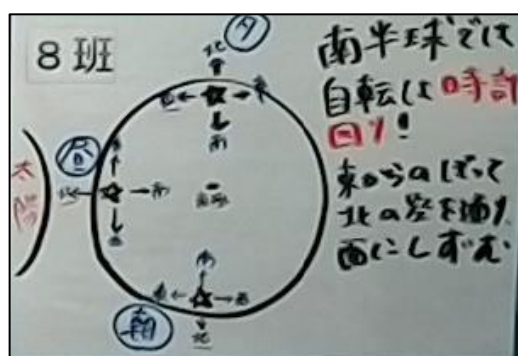 8班
夕
北
西 東
南
昼
東
北 南
西
太陽
南極
南
東 西
北
朝
南半球では
自転は時計
回り!
東からのぼって
北の空を通り
西にしずむ